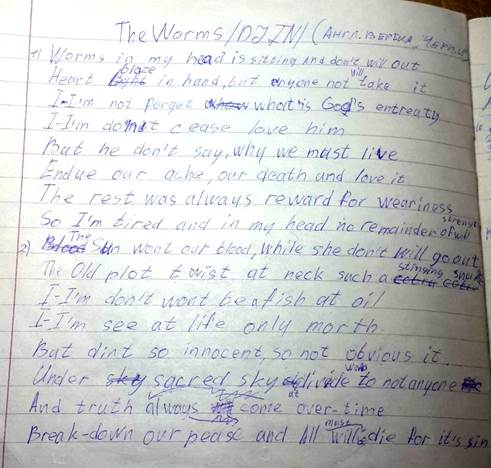 The Worms /DJIN/ (Англ. версия, Черви)
1) Worms in my head is sitting and don't will out
Heart blaze in hand, but anyone not will take it
I-I'm not forget what is God's entreaty
I-I'm donnt cease love him
But he don't say, why we mast live
Endue our ache, our death and love it
The rest was always reward for weariness
So I'm tired and in my head no remainder of strenght
2) The Sun wont our blood, while she don't will go out
The Old plot twist at neck such a stinging snake
I-I'm don't wont be a fish at oil
I-I'm see at life only morth.
But dint so innocent, so not obvious it.
Under sacred sky divide to not anyone
And truth always come over-time
Break-down our pease and All must die for it's sin